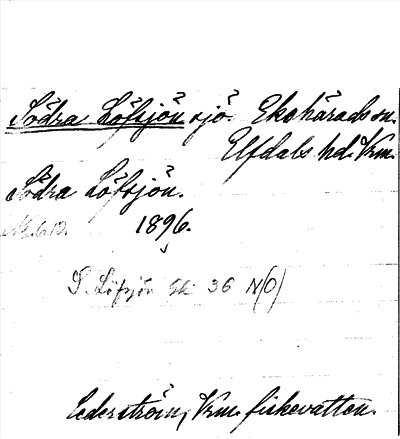 Södra Löfsjön sjö. Ekshärads sn.
Elfdals hd. Vrm.
Södra Löfsjön.
1896.
S. Löfsjön Sk. 36 N(O)
Cederström, Vrm. fiskevatten.